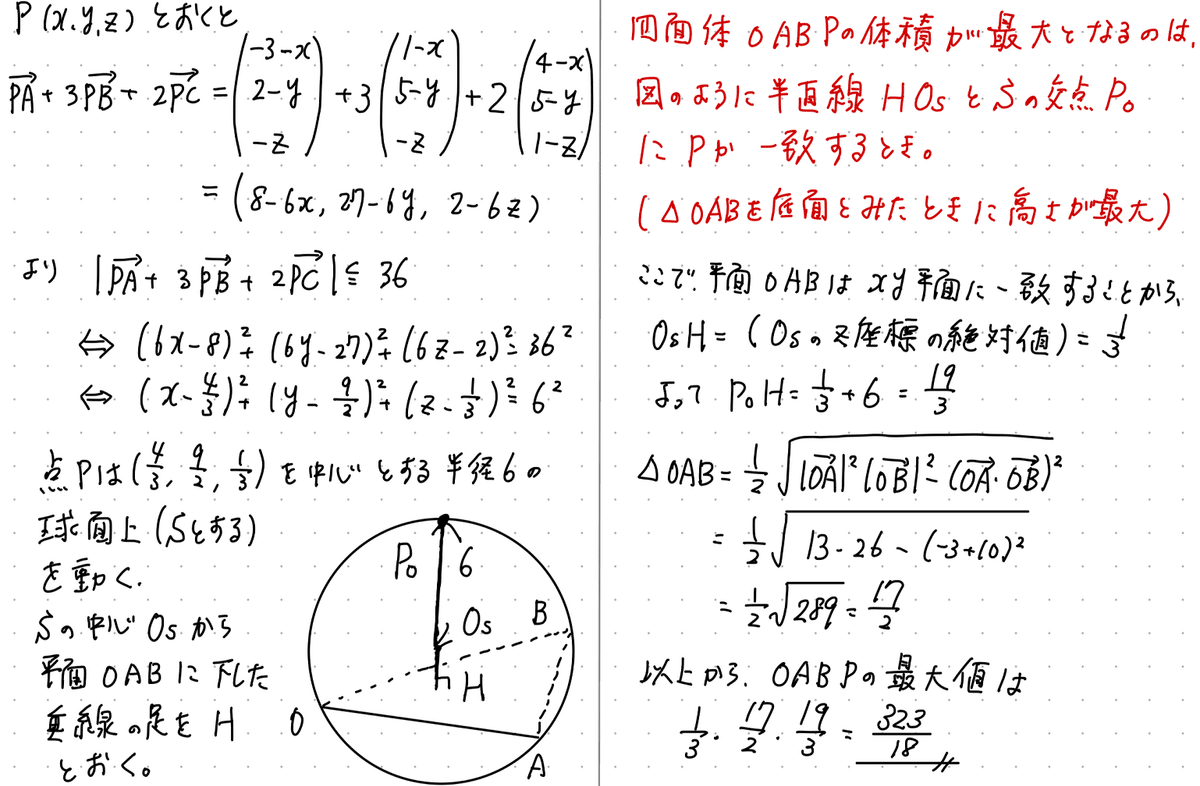 P(x, y, z) とおくと
PA→ + 3PB→ + 2PC→ = (-3-x, 2-y, -z) + 3(1-x, 5-y, -z) + 2(4-x, 5-y, 1-z)
= (8-6x, 27-6y, 2-6z)
より |PA→ + 3PB→ + 2PC→| ≦ 36
⇔ (6x-8)²+(6y-27)²+(6z-2)² = 36²
⇔ (x-4/3)²+(y-9/2)²+(z-1/3)² = 6²
点Pは(4/3, 9/2, 1/3)を中心とする半径6の
球面上(Sとする)
を動く.
Sの中心Osから
平面OABに下した
垂線の足をH
とおく。
P₀
6
Os
B
H
O
A
四面体OABPの体積が最大となるのは,
図のように半直線HOsとSの交点P₀
にPが一致するとき。
(△OABを底面とみたときに高さが最大)
ここで, 平面OABはxy平面に一致することから,
OsH = (Osのz座標の絶対値) = 1/3
よって P₀H = 1/3 + 6 = 19/3
△OAB = 1/2 √(|OA→|²|OB→|² - (OA→・OB→)²)
= 1/2 √(13・26 - (-3+10)²)
= 1/2 √289 = 17/2
以上から, OABPの最大値は
1/3 ・ 17/2 ・ 19/3 = 323/18